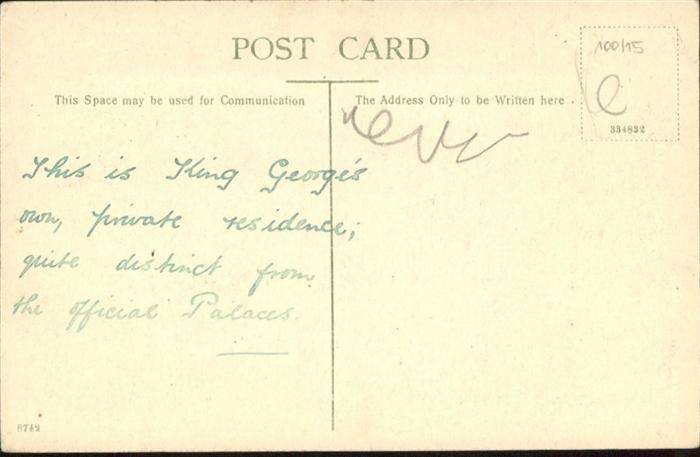 POST CARD
This Space may be used for Communication
The Address Only to be Written here .
100/15
334832
This is King George's
own, private residence;
quite distinct from
the official Palaces.
8742